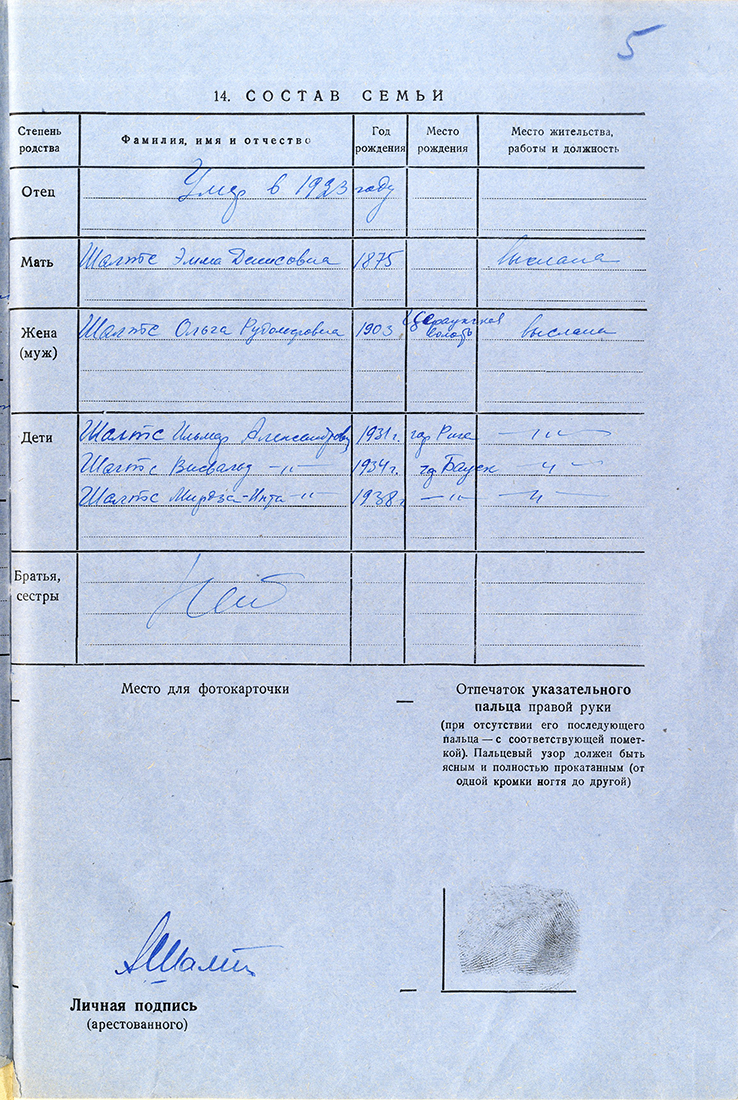 5
14. СОСТАВ СЕМЬИ
Степень родства Фамилия, имя и отчество Год рождения Место рождения Место жительства, работы и должность
Отец Умер в 1923 году
Мать Шалтс Эмма Денисовна 1875 выслана
Жена (муж) Шалтс Ольга Рудольфовна 1903 волость выслана
Дети Шалтс Ильмар Александрович 1931 г. гор Рига —〃—
Шалтс Висвальд —〃— 1934 г. гор Бауск —〃—
Шалтс Мирдза-Инта —〃— 1938 г —〃— —〃—
Братья, сестры Нет
Место для фотокарточки
Отпечаток указательного
пальца правой руки
(при отсутствии его последующего
пальца — с соответствующей помет-
кой). Пальцевый узор должен быть
ясным и полностью прокатанным (от
одной кромки ногтя до другой)
АШалтс
Личная подпись
(арестованного)